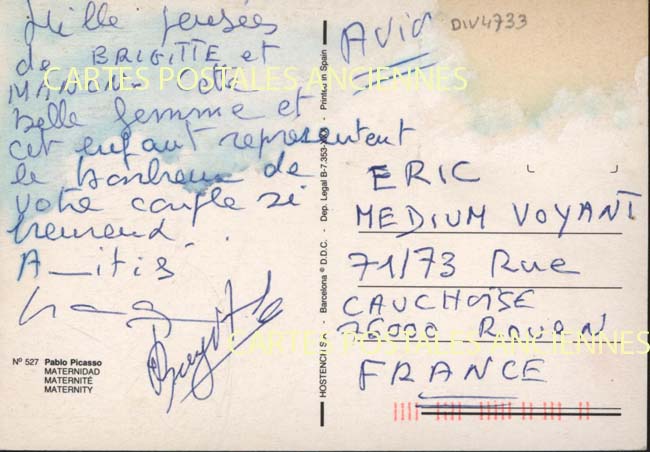 Mille pensées
de BRIGITTE et
Cette
belle femme et
cet enfant representent
le bonheur de
votre couple si
heureux.
A_itiés
Brigitte
Nº 527 Pablo Picasso
MATERNIDAD
MATERNITÉ
MATERNITY
HOSTENCH S.A. - Barcelona ® D.D.C. - Dep. Legal B-7.353-XXX - Printed in Spain
AVION
DIV4733
ERIC
MEDIUM VOYANT
71/73 Rue
CAUCHOISE
76000 ROUEN
FRANCE
CARTES POSTALES ANCIENNES
CARTES POSTALES ANCIENNES